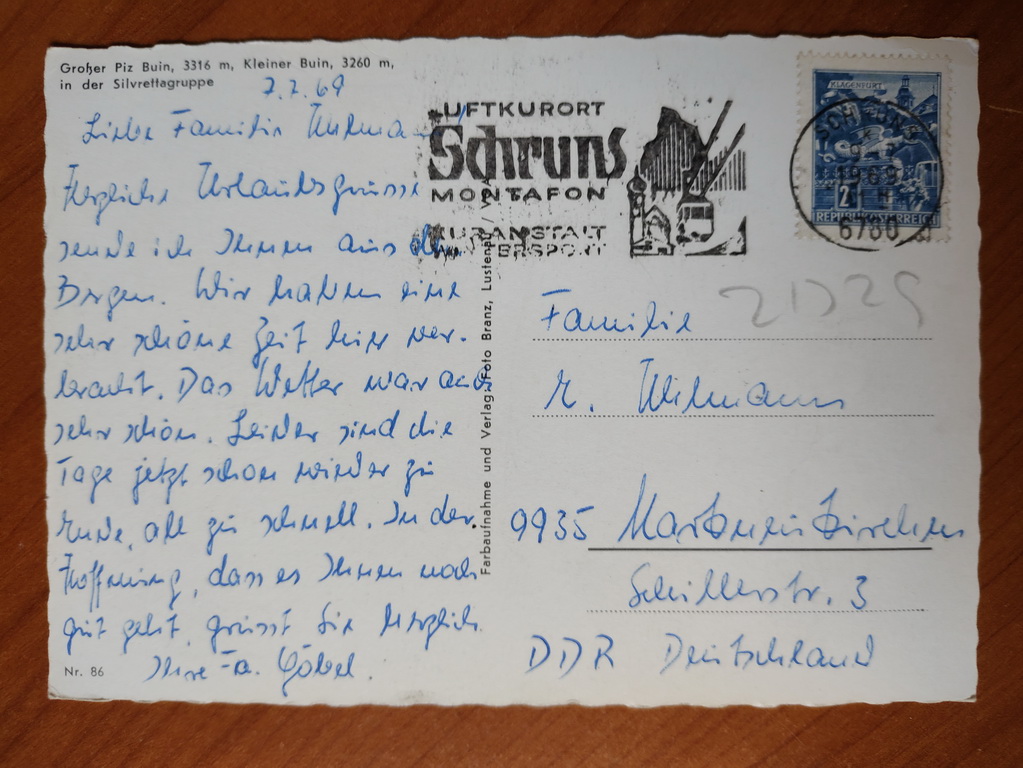 Großer Piz Buin, 3316 m, Kleiner Buin, 3260 m,
in der Silvrettagruppe
7.7.69
Liebe Familie
Herzliche Urlaubsgrüsse
sende ich Ihnen aus den
Bergen. Wir haben eine
sehr schöne Zeit hier ver-
bracht. Das Wetter war auch
sehr schön. Leider sind die
Tage jetzt schon wieder zu
Ende, all zu schnell. In der
Hoffnung, dass es Ihnen noch
gut geht, grüsst Sie herzlich
Ihre Fa. Göbel.
Nr. 86
Farbaufnahme und Verlag: Foto Branz, Lustenau /
LUFTKURORT
Schruns
MONTAFON
KURANSTALT
WINTERSPORT
KLAGENFURT
2
REPUBLIK ÖSTERREICH
SCHRUNS
1969
6780
21325
Familie
9935 Markneukirchen
Schillerstr. 3
DDR Deutschland